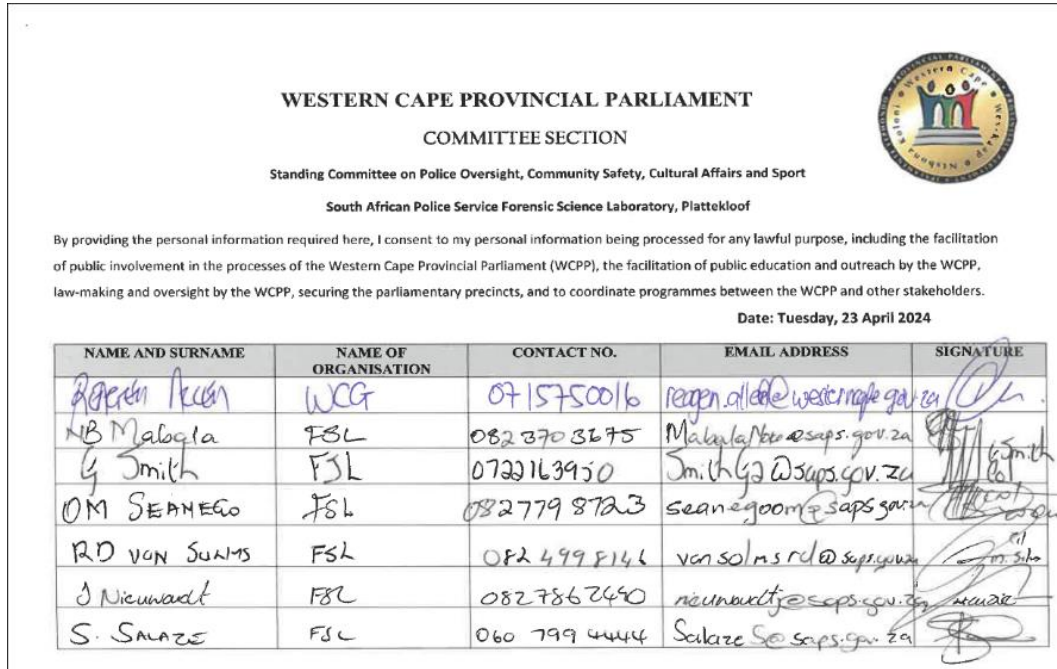 WESTERN CAPE PROVINCIAL PARLIAMENT
COMMITTEE SECTION
Standing Committee on Police Oversight, Community Safety, Cultural Affairs and Sport
South African Police Service Forensic Science Laboratory, Plattekloof
By providing the personal information required here, I consent to my personal information being processed for any lawful purpose, including the facilitation
of public involvement in the processes of the Western Cape Provincial Parliament (WCPP), the facilitation of public education and outreach by the WCPP,
law-making and oversight by the WCPP, securing the parliamentary precincts, and to coordinate programmes between the WCPP and other stakeholders.
Date: Tuesday, 23 April 2024
NAME AND SURNAME NAME OF ORGANISATION CONTACT NO. EMAIL ADDRESS SIGNATURE
WCG 0715750016
NB FSL 082 370 3675
G Smith FSL 0722163950 SmithG2@saps.gov.za G Smith
OM SEANEGO FSL 082779 8723 seanegoom@saps.gov.za
RD von SOLMS FSL 082 499 8146 vonsolmsrd@saps.gov.za
J Nieuwoudt FSL 0827862490 nieuwoudtj@saps.gov.za
S. SALAZE FSL 060 799 4444 SalazeS@saps.gov.za